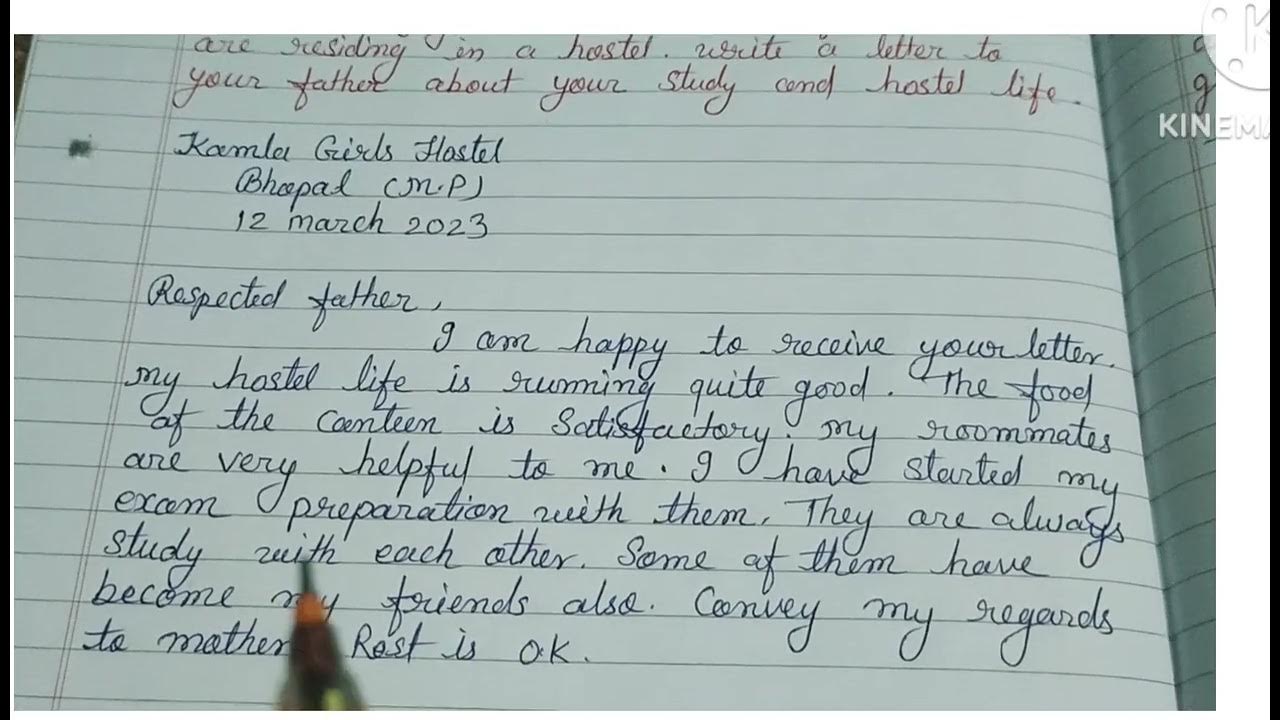 are residing in a hostel. write a letter to
your father about your study and hostel life.
Kamla Girls Hostel
Bhopal (M.P)
12 march 2023
Respected father,
I am happy to receive your letter.
my hostel life is running quite good. The food
of the canteen is satisfactory. my roommates
are very helpful to me. I have started my
exam preparation with them. They are always
study with each other. Some of them have
become my friends also. Convey my regards
to mother Rest is O.K.
KINEMA